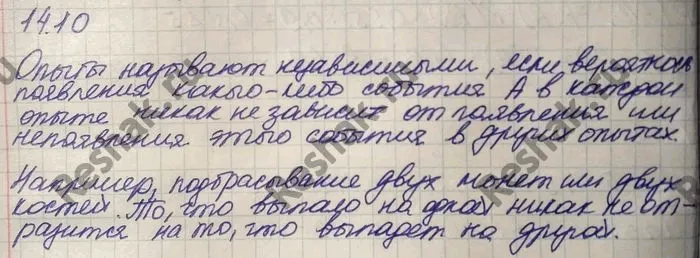 14.10
Опыты называют независимыми, если вероятность
появления какого-либо события А в каждом
опыте никак не зависит от появления или
непоявления этого события в других опытах.
Например, подбрасывание двух монет или двух
костей. То, что выпало на одной никак не от-
разится на то, что выпадет на другой.
Reshak.ru